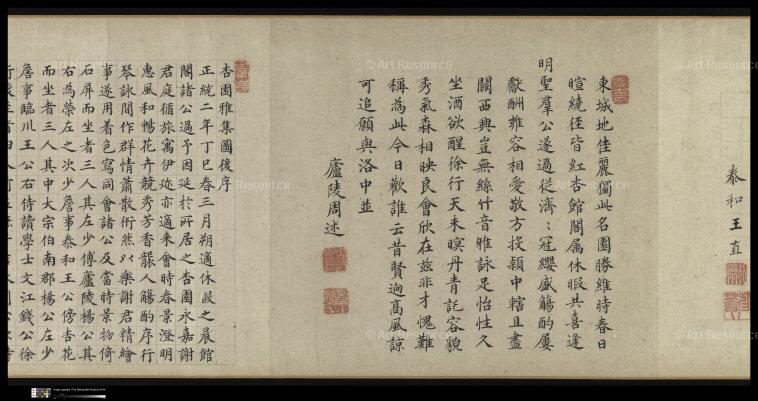 泰和王直
東城地佳麗獨此名園勝維時春日
暄繞徑皆紅杏館閣属休暇共喜逢
明聖羣公遂過從濟〻冠纓盛觴酌屢
獻酬雍容相愛敬方投頴中轄且盡
關西興豈無絲竹音雅詠足怡性久
坐酒欲醒徐行天未暝丹青託容貌
秀氣森相映良會欣在兹非才愧難
稱為此今日歡誰云昔賢迥高風諒
可追願與洛中並
廬陵周述
杏園雅集圖後序
正統二年丁巳春三月朔適休假之晨館
閣諸公過予因延於所居之杏園永嘉謝
君庭循旅寓伊迩亦適来會時春景澄明
惠風和暢花卉競秀芳香襲人觴酌序行
琴詠間作群情蕭散衎然以樂謝君精繪
事遂用着色寫同會諸公及當時景物倚
石屏而坐者三人其左少傅廬陵楊公其
右為榮左之次少詹事泰和王公傍杏花
而坐者三人其中大宗伯南郡楊公左少
詹事臨川王公右侍讀學士文江錢公徐
Art Resource
Art Resource
Art Resource